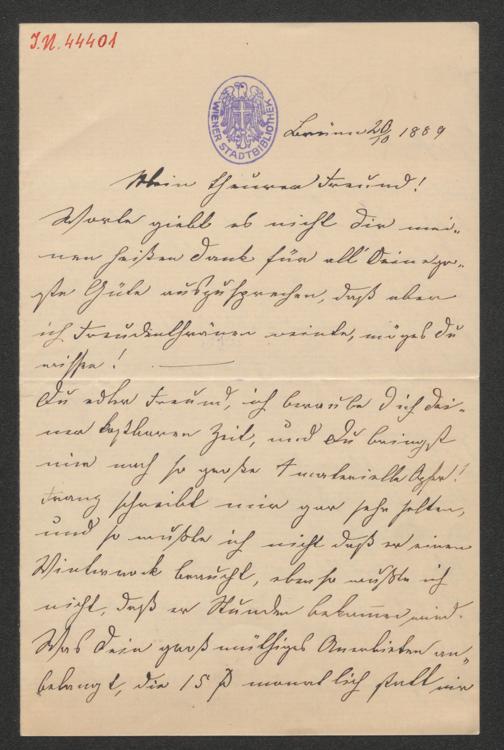 J.N. 44401
WIENER STADTBIBLIOTHEK
Brünn 20/10 1889
Mein theurer Freund!
Worte giebt es nicht Dir mei-
nen heißen Dank für all' Deine gro-
ße Güte auszusprechen, daß aber
ich Freudenthränen weinte, mögest Du
wissen! —
Du edler Freund, ich beraube Dich Dei-
ner kostbaren Zeit, und Du bringst
mir noch so große materielle Opfer!
Franz schreibt mir gar sehr selten,
und so wußte ich nicht daß er einen
Winterrock braucht, ebenso wußte ich
nicht, daß er Stunden bekommen wird.
Was Dein großmüthiges Anerbieten an-
belangt, die 15 f monatlich statt mir